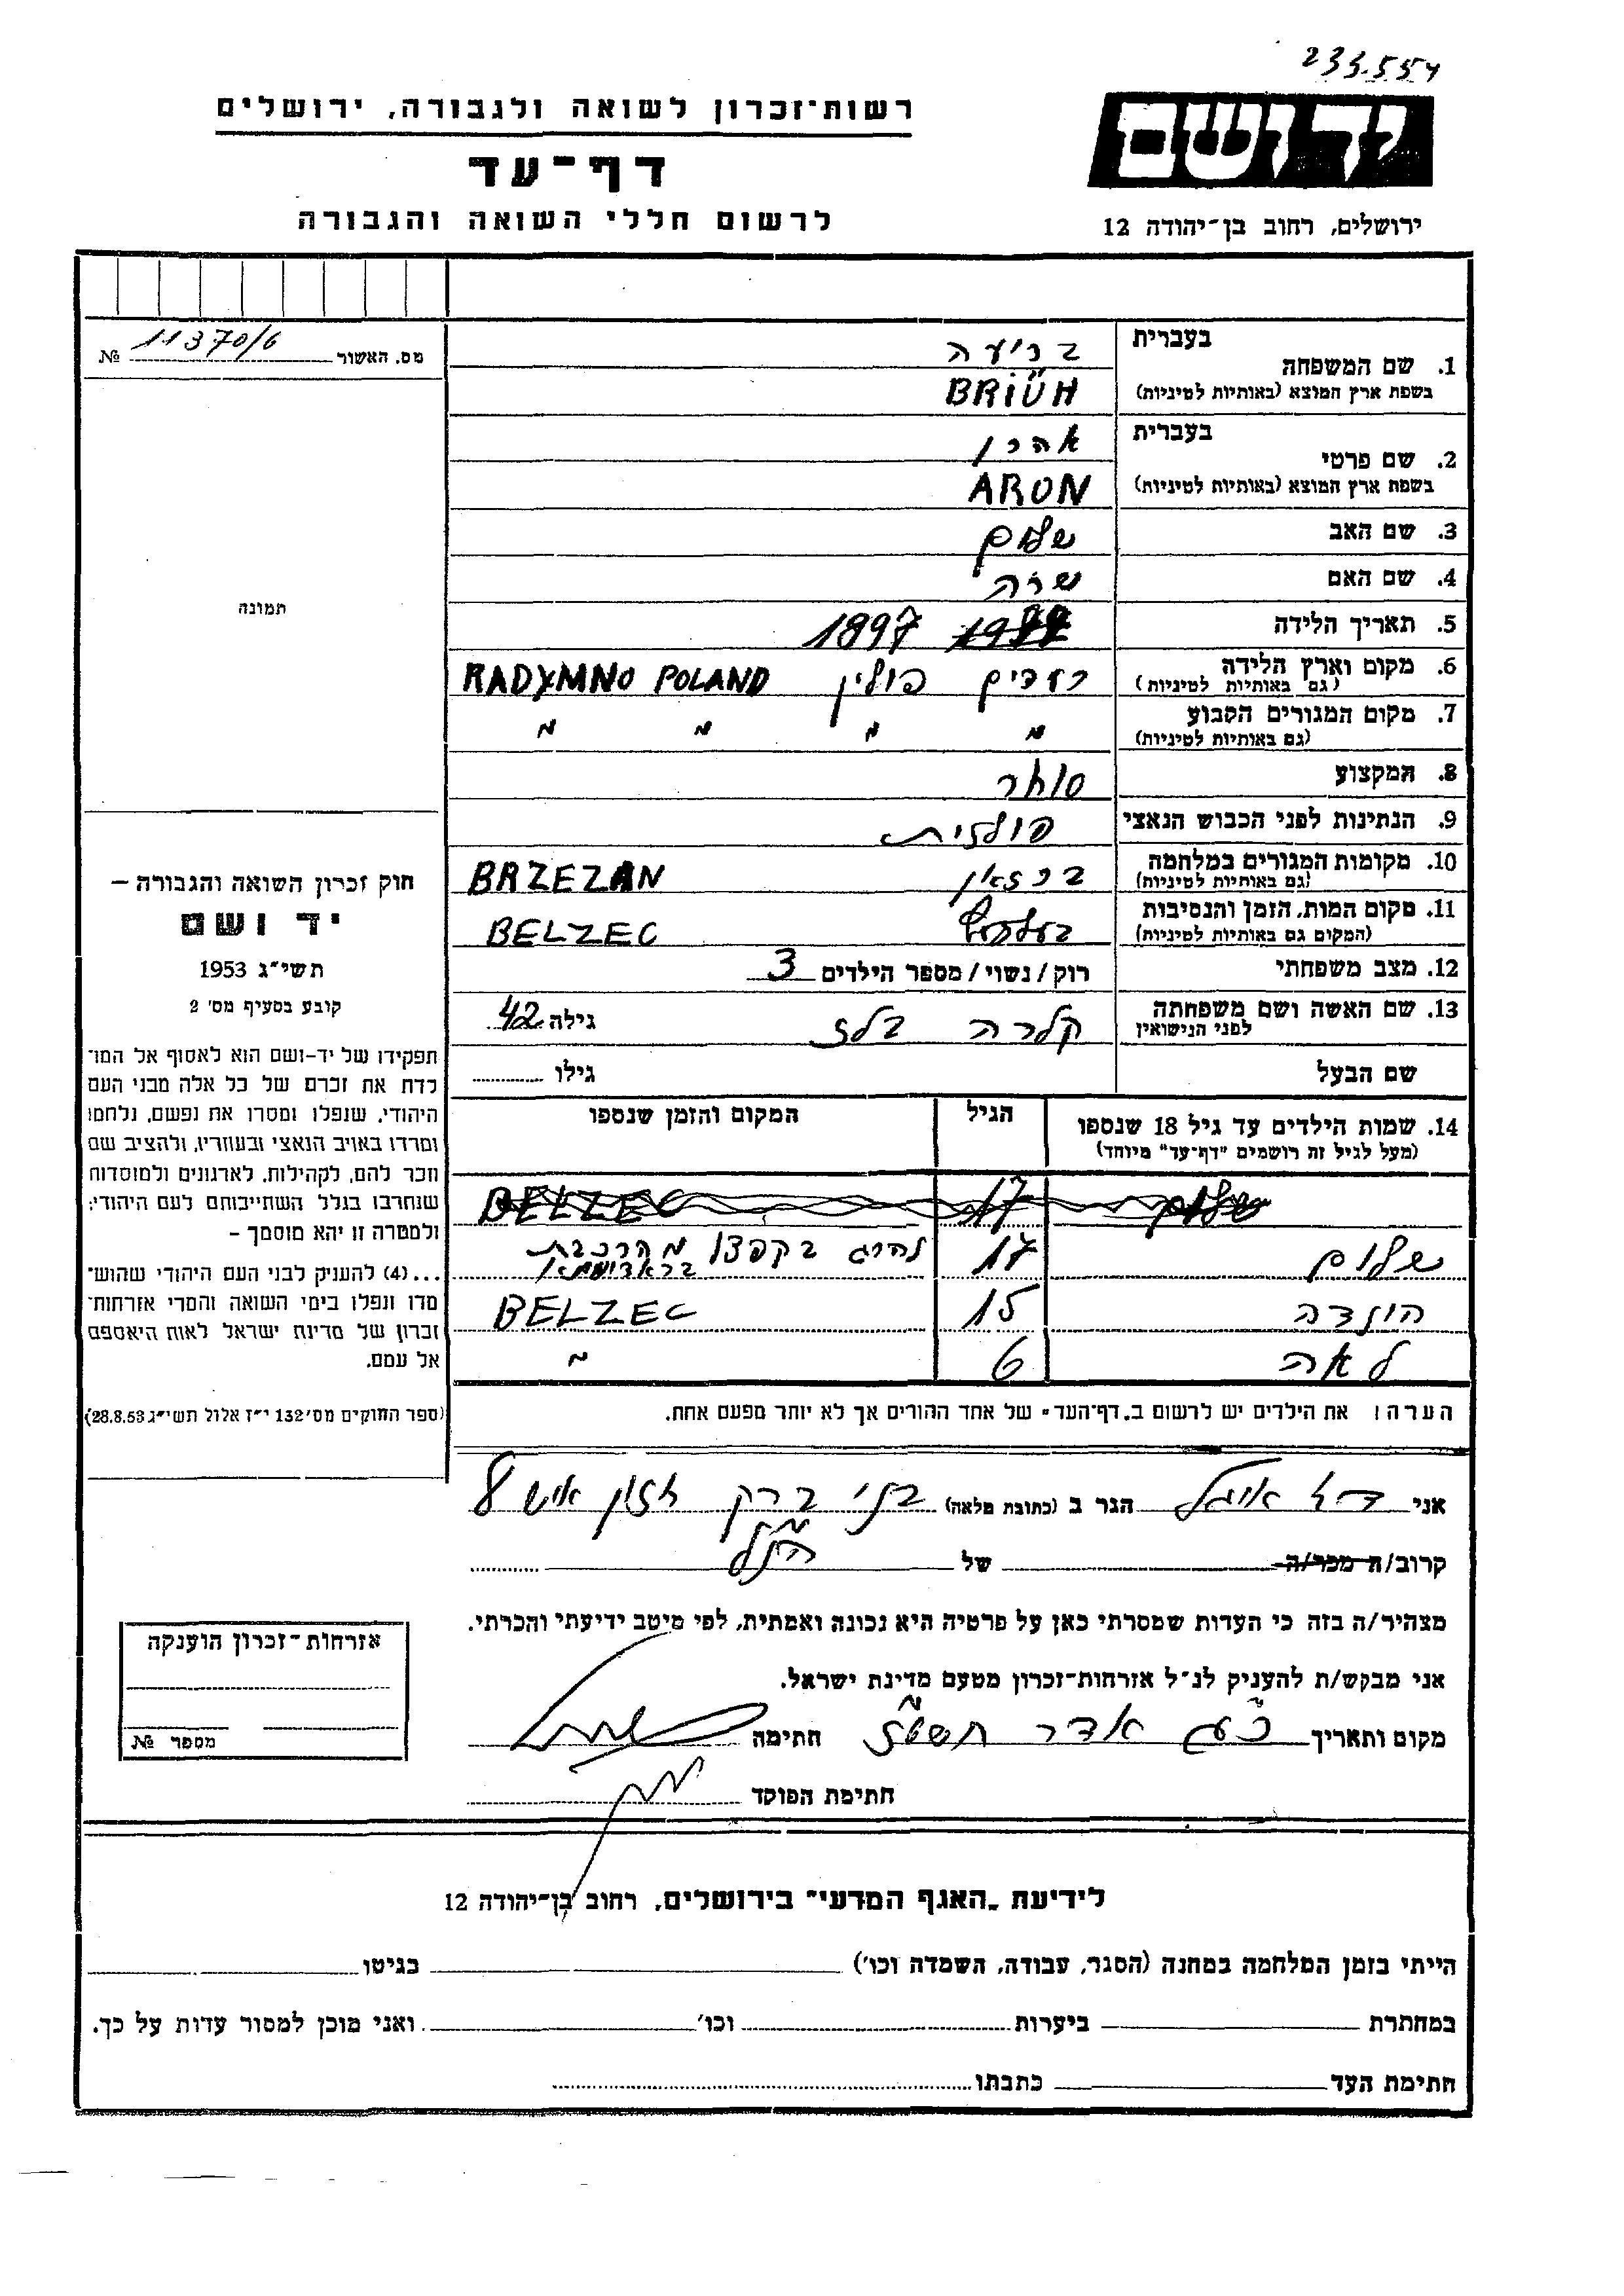 233.554
רשות־זכרון לשואה ולגבורה, ירושלים
ידושם
דף־עד
לרשום חללי השואה והגבורה
ירושלים, רחוב בן־יהודה 12
מס. האשור 11370/6 №
תמונה
חוק זכרון השואה והגבורה –
יד ושם
תשי״ג 1953
קובע בסעיף מס׳ 2
תפקידו של יד-ושם הוא לאסוף אל המו־
לדת את זכרם של כל אלה מבני העם
היהודי, שנפלו ומסרו את נפשם, נלחמו
ומרדו באויב הנאצי ובעוזריו, ולהציב שם
וזכר להם, לקהילות, לארגונים ולמוסדות
שנחרבו בגלל השתייכותם לעם היהודי;
ולמטרה זו יהא מוסמך –
...(4) להעניק לבני העם היהודי שהוש־
מדו ונפלו בימי השואה והמרי אזרחות־
זכרון של מדינת ישראל לאות היאספם
אל עמם.
(ספר החוקים מס׳ 132 י״ז אלול תשי״ג 28.8.53)
1. שם המשפחה
בעברית בריעה
בשפת ארץ המוצא (באותיות לטיניות) BRIÜH
2. שם פרטי
בעברית אהרן
בשפת ארץ המוצא (באותיות לטיניות) ARON
3. שם האב שלום
4. שם האם שרה
5. תאריך הלידה 1897
6. מקום וארץ הלידה פולין RADYMNO POLAND
(גם באותיות לטיניות)
7. מקום המגורים הקבוע " " " "
(גם באותיות לטיניות)
8. המקצוע סוחר
9. הנתינות לפני הכבוש הנאצי פולנית
10. מקומות המגורים במלחמה ברזאן BRZEZAN
(גם באותיות לטיניות)
11. מקום המות, הזמן והנסיבות BELZEC
(המקום גם באותיות לטיניות)
12. מצב משפחתי רוק/נשוי/מספר הילדים 3
13. שם האשה ושם משפחתה קלרה גילה 42
לפני הנישואין
שם הבעל גילו
14. שמות הילדים עד גיל 18 שנספו הגיל המקום והזמן שנספו
(מעל לגיל זה רושמים "דף־עד" מיוחד)
שלום 17 BELZEC
שלום 17 נהרג בקפצו מהרכבת
הולדה 15 BELZEC
לאה 6 "
הערה: את הילדים יש לרשום ב„דף־העד" של אחד ההורים אך לא יותר מפעם אחת.
אני הגר ב (כתובת מלאה) בני ברק חזון איש 8
קרוב/ה מכר/ה של הנ"ל
מצהיר/ה בזה כי העדות שמסרתי כאן על פרטיה היא נכונה ואמתית, לפי מיטב ידיעתי והכרתי.
אני מבקש/ת להעניק לנ״ל אזרחות־זכרון מטעם מדינת ישראל.
מקום ותאריך אדר חתימה
חתימת הפוקד
אזרחות־זכרון הוענקה
מספר №
לידיעת „האגף המדעי" בירושלים, רחוב בן־יהודה 12
הייתי בזמן המלחמה במחנה (הסגר, עבודה, השמדה וכו׳) בגיטו
במחתרת ביערות וכו׳ ואני מוכן למסור עדות על כך.
חתימת העד כתבתו